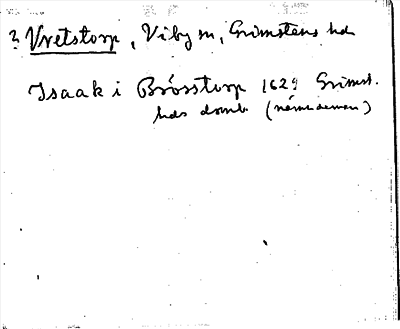 ? Vretstorp, Viby sn, Grimstens hd
Isaak i Brösstorp 1629 Grimst.
hds domb (nämndeman)